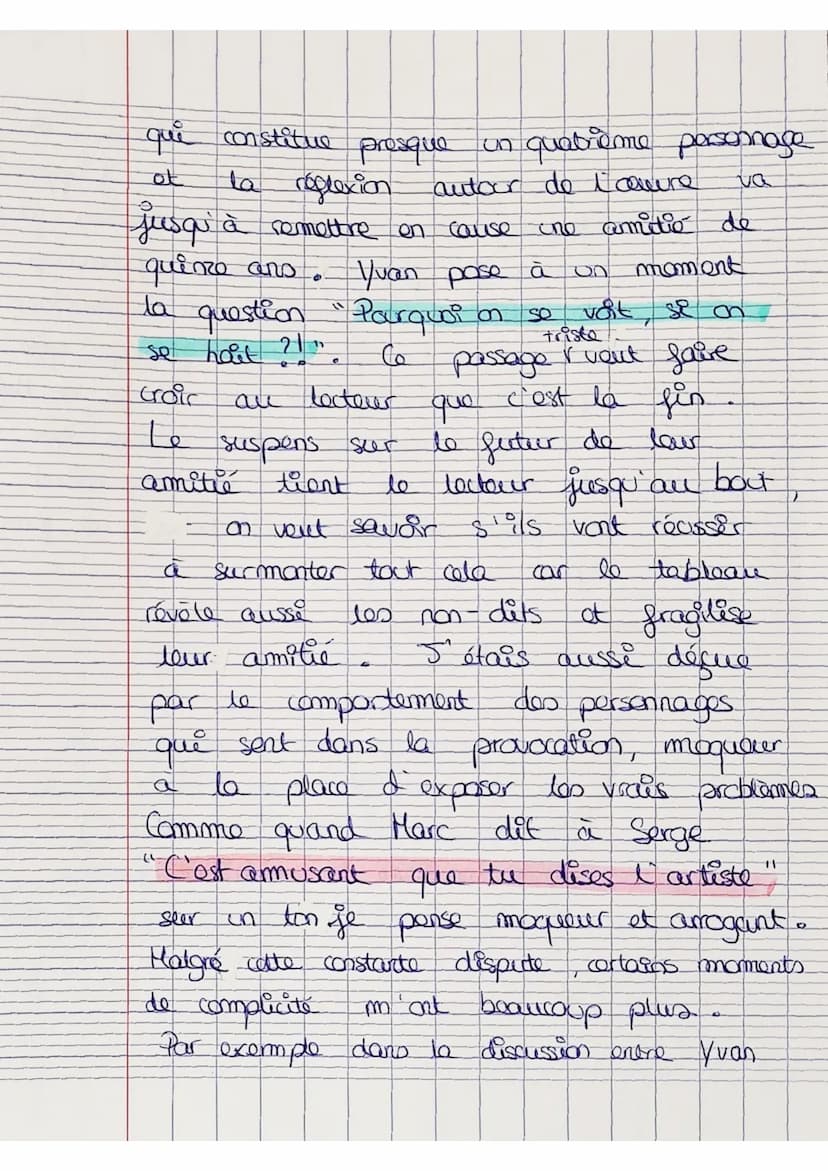 qui constitue presque un quatrième personnage
et la réflexion autour de l'œuvre va
jusqu'à remettre en cause une amitié de
quinze ans. Yvan pose à un moment
la question "Pourquoi on se voit, si on
se hait ?!". Ce passage triste veut faire
croir au lecteur que c'est la fin.
Le suspens sur le futur de leur
amitié tient le lecteur jusqu'au bout,
on veut savoir s'ils vont réussir
à surmonter tout cela car le tableau
révèle aussi les non-dits et fragilise
leur amitié. J'étais aussi déçue
par le comportement des personnages
qui sont dans la provocation, moqueur
a la place d'exposer les vrais problèmes
Comme quand Marc dit à Serge
"C'est amusant que tu dises l'artiste",
sur un ton je pense moqueur et arrogant.
Malgré cette constante dispute, certains moments
de complicité m'ont beaucoup plus.
Par exemple dans la discussion entre Yvan